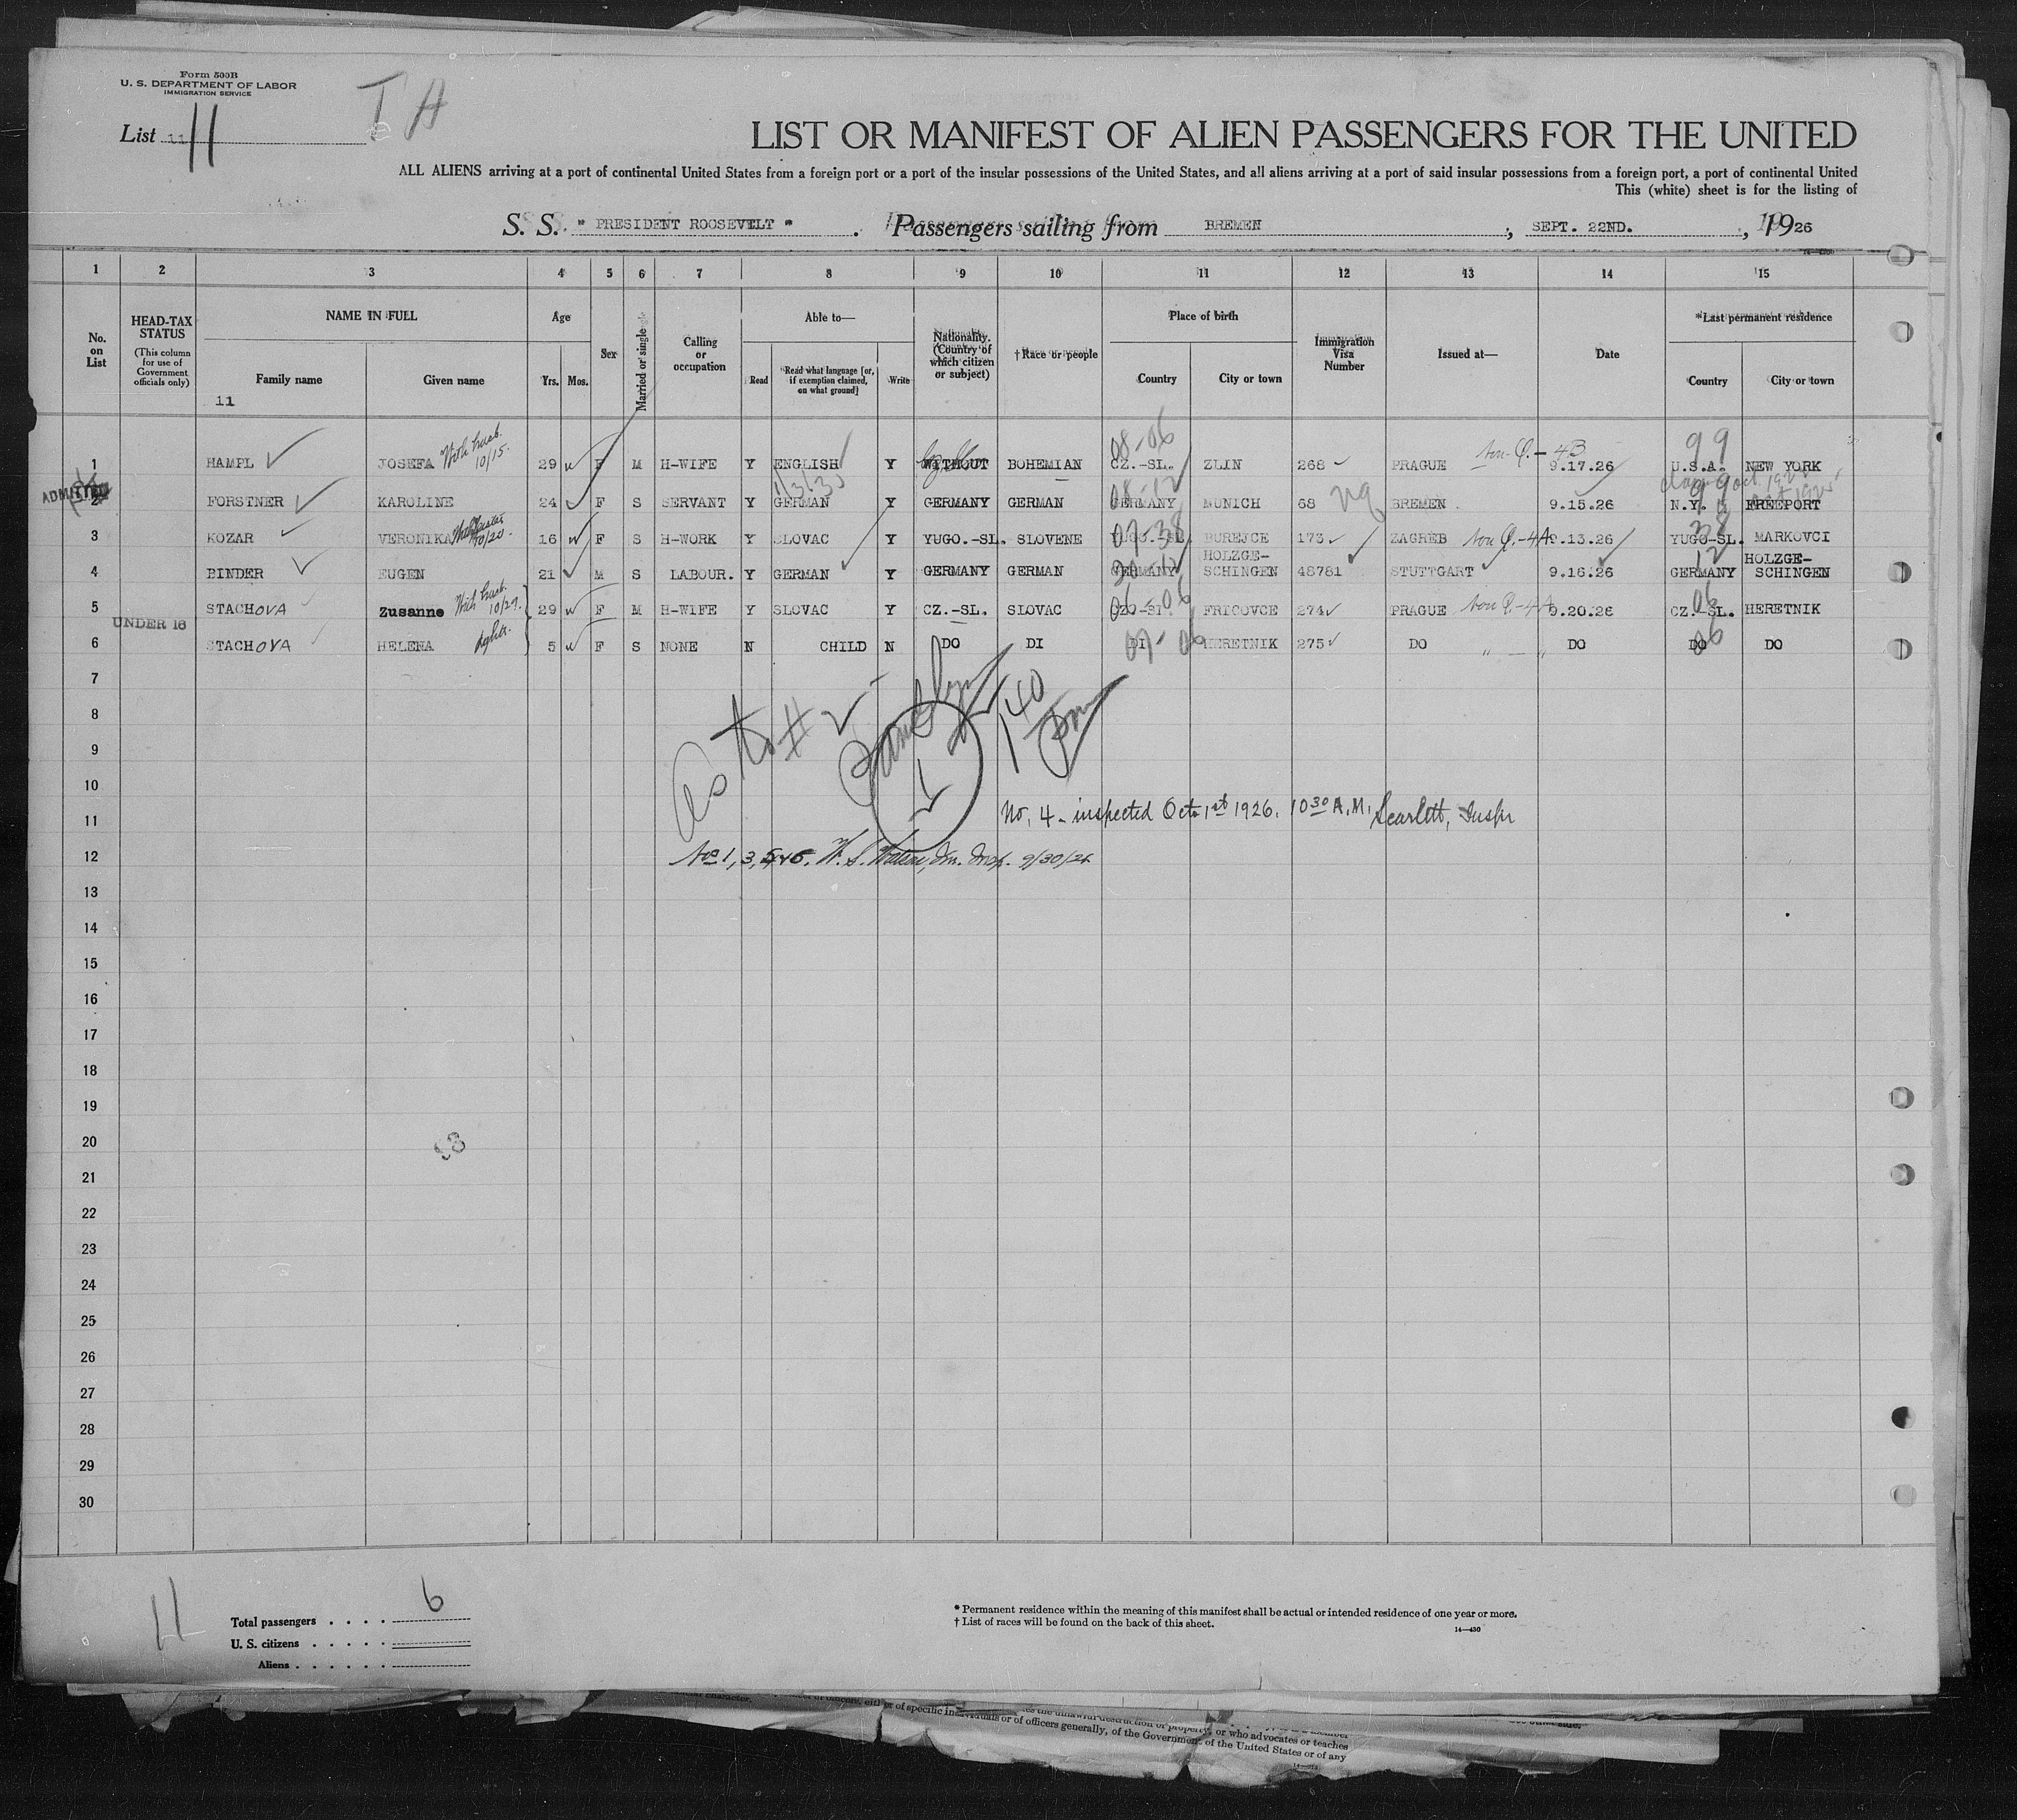 Form 500B
U. S. DEPARTMENT OF LABOR
IMMIGRATION SERVICE
T A
List 11 11
LIST OR MANIFEST OF ALIEN PASSENGERS FOR THE UNITED
ALL ALIENS arriving at a port of continental United States from a foreign port or a port of the insular possessions of the United States, and all aliens arriving at a port of said insular possessions from a foreign port, a port of continental United
This (white) sheet is for the listing of
S. S. " PRESIDENT ROOSEVELT " . Passengers sailing from BREMEN , SEPT. 22ND. , 1926
1 2 3 4 5 6 7 8 9 10 11 12 13 14 15
No. on List HEAD-TAX STATUS (This column for use of Government officials only) NAME IN FULL Family name Given name Age Yrs. Mos. Sex Married or single Calling or occupation Able to— Read Read what language [or, if exemption claimed, on what ground] Write Nationality. (Country of which citizen or subject) † Race or people Place of birth Country City or town Immigration Visa Number Issued at— Date *Last permanent residence Country City or town
11
1 HAMPL JOSEFA With husb. 10/15. 29 F M H-WIFE Y ENGLISH Y WITHOUT BOHEMIAN 08-06 CZ.-SL. ZLIN 268 PRAGUE 9.17.26 99 U.S.A. NEW YORK
ADMITTED 2 FORSTNER KAROLINE 24 F S SERVANT Y GERMAN Y GERMANY GERMAN 08-12 GERMANY MUNICH 68 BREMEN 9.15.26 99 N.Y. FREEPORT
3 KOZAR VERONIKA 10/20. 16 F S H-WORK Y SLOVAC Y YUGO.-SL. SLOVENE 07-38 YUGO.-SL. BUREJCE 173 ZAGREB 9.13.26 38 YUGO-SL. MARKOVCI
4 BINDER EUGEN 21 M S LABOUR. Y GERMAN Y GERMANY GERMAN GERMANY HOLZGE-SCHINGEN 48781 STUTTGART 9.16.26 12 GERMANY HOLZGE-SCHINGEN
5 STACHOVA Zusanne With husb. 10/29. 29 F M H-WIFE Y SLOVAC Y CZ.-SL. SLOVAC 06-06 CZ.-SL. FRICOVCE 274 PRAGUE 9.20.26 06 CZ.-SL. HERETNIK
UNDER 16
6 STACHOVA HELENA 5 F S NONE N CHILD N DO DI DI HERETNIK 275 DO DO 06 DO DO
7
8
As to # 2 140
9
10
11 No. 4 - inspected Oct. 1st 1926. 10 30 A.M. Scarlett, Inspr
12 Nos 1, 3, 5 & 6. W. S. Im. Insp. 9/30/26
13
14
15
16
17
18
19
20
21
22
23
24
25
26
27
28
29
30
11
Total passengers . . . . 6
U. S. citizens . . . . .
Aliens . . . . . .
* Permanent residence within the meaning of this manifest shall be actual or intended residence of one year or more.
† List of races will be found on the back of this sheet.
14—430
or who advocates or teaches
of specific individuals or of officers generally, of the Government of the United States or of any